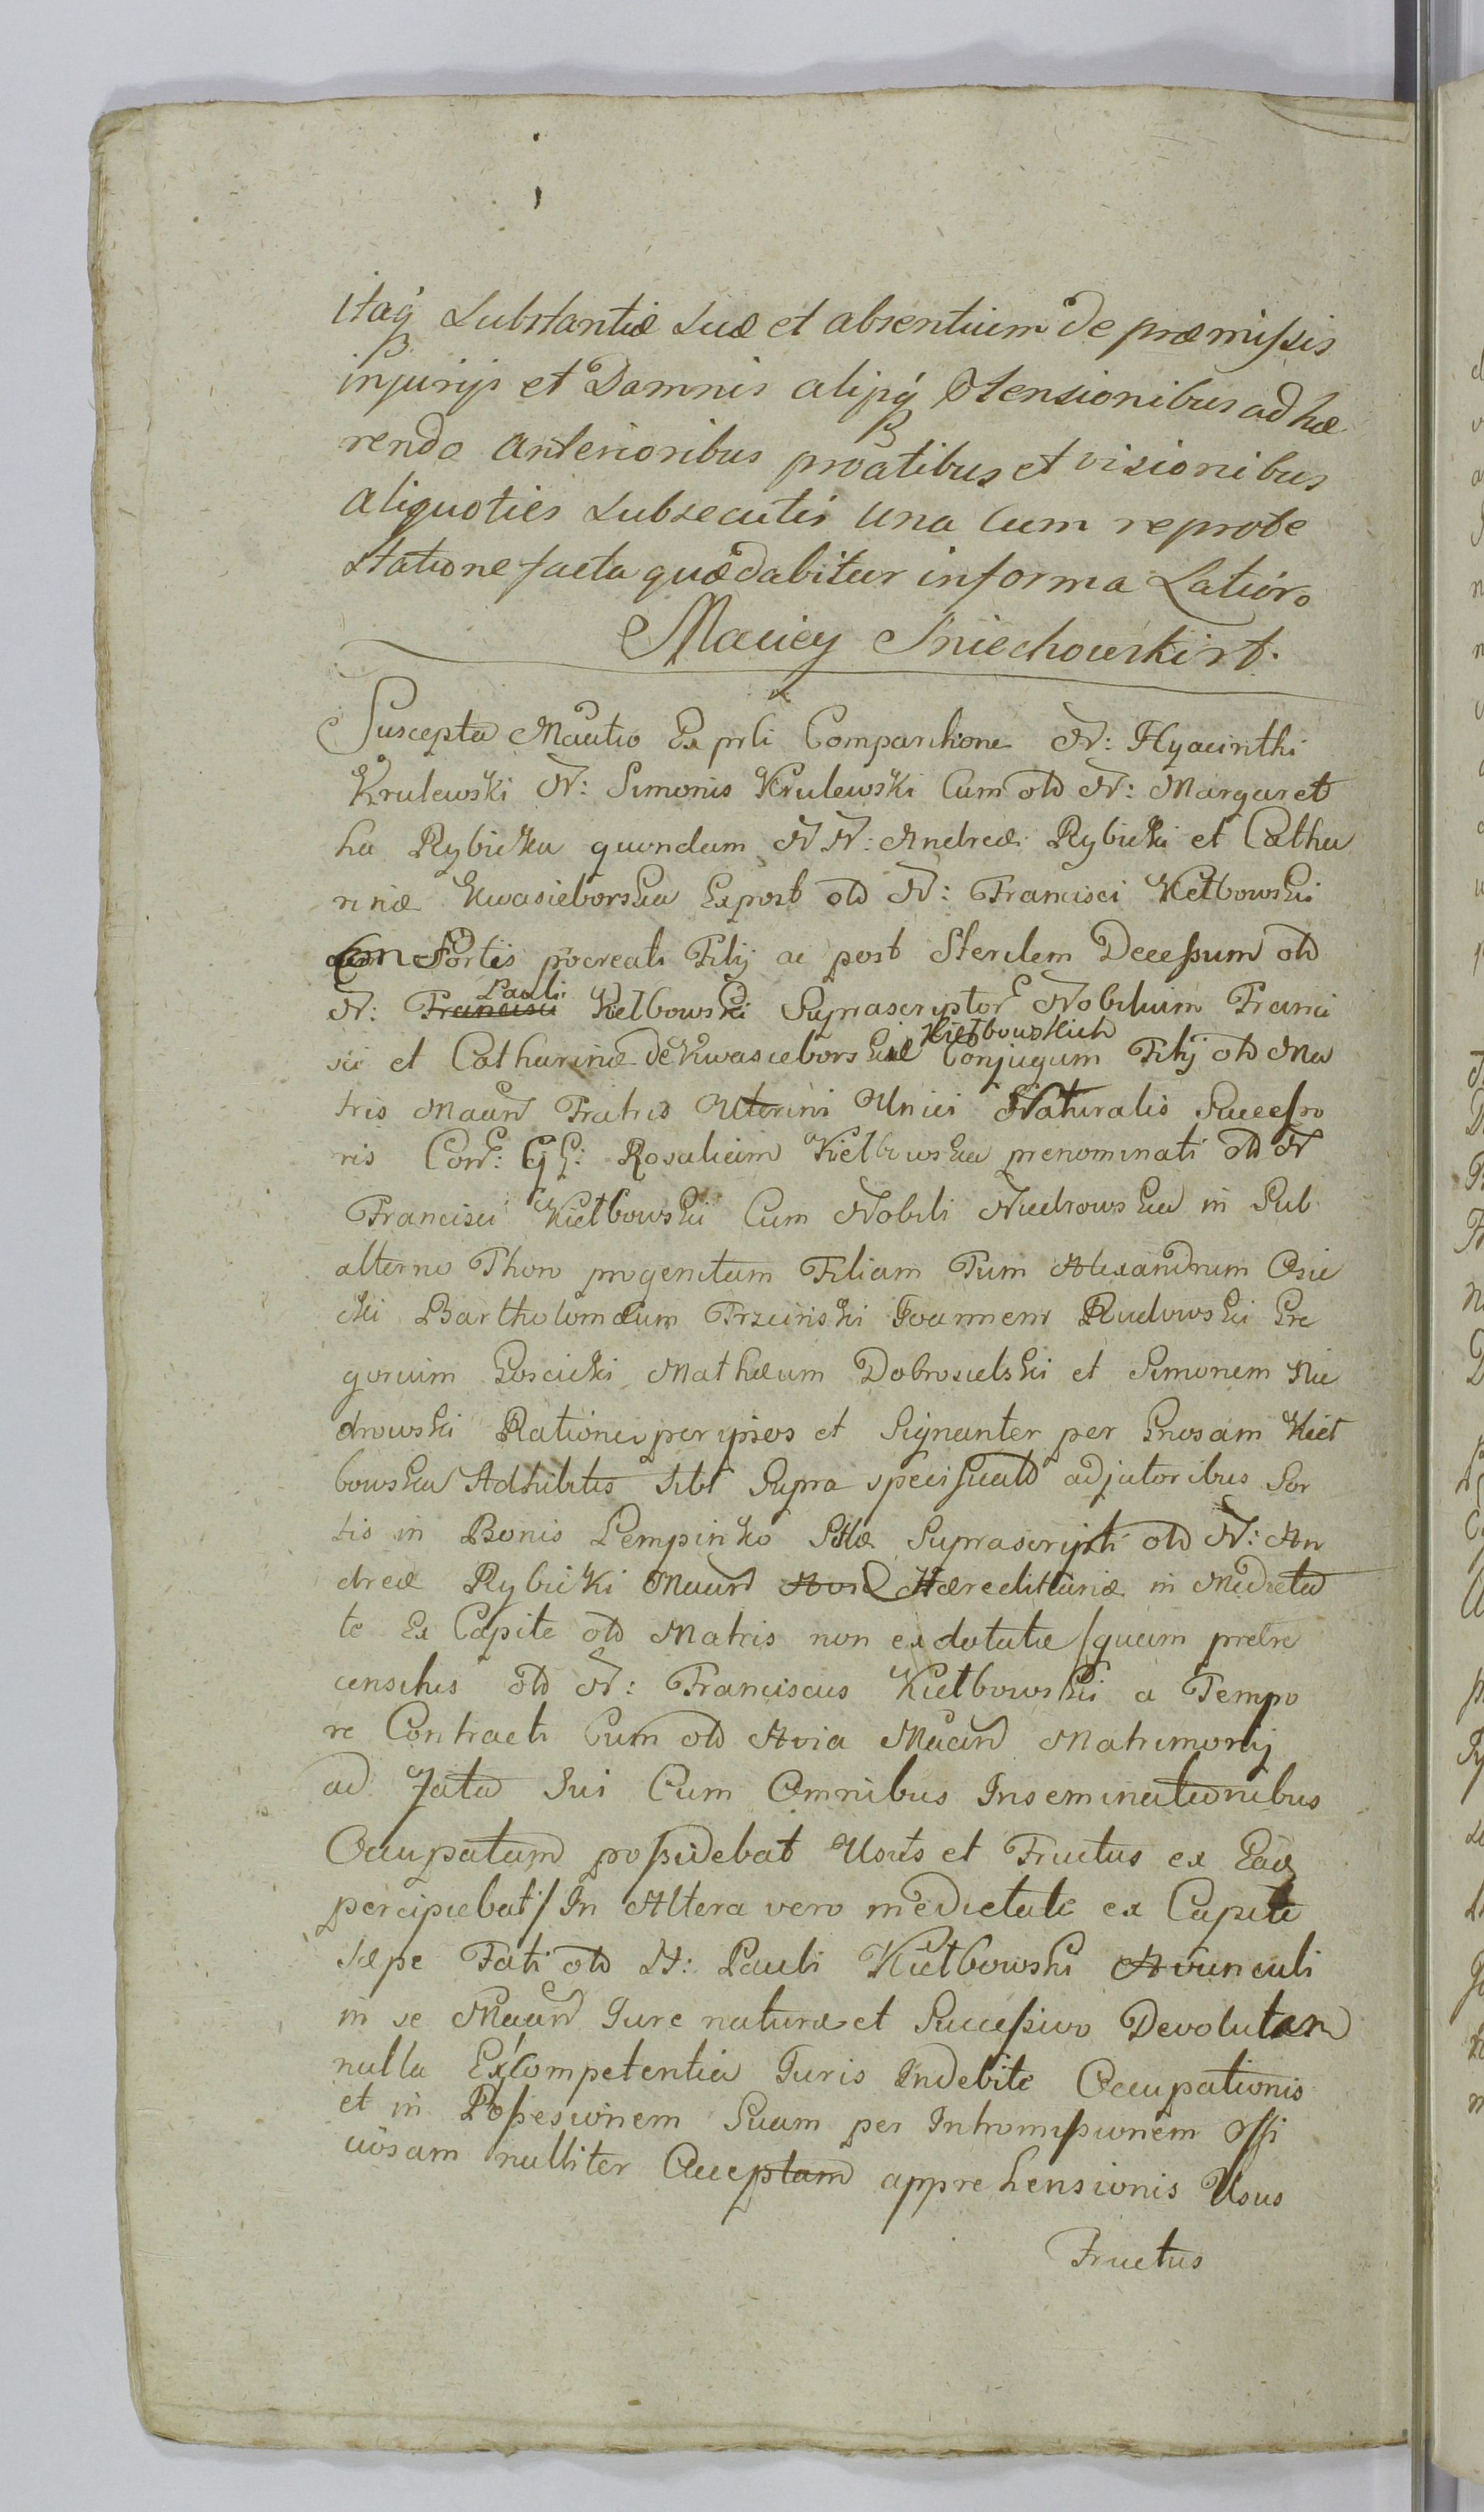 itaq substantiæ suæ et absentium de præmissis
injurijs et Damnis alijsq tensionibus adhæ
rendo anterioribus proatibus et visionibus
aliquoties subsecutis una cum reprote
statione facta quæ dabitur in forma Latiori
Maciey Sniechowski
Suscepta Mātio Ex prli Comparitione N: Hyacinthi
Krulewski N: Simonis Krulewski Cum old N: Margaret
ha Rybicka quondam N N: Andreæ Rybicki et Catha
rinæ Kwasieborska Expost old N: Francisci Kiełbowski
Con Sortis procreati Filij ac post Sterilem Decessum old
N: Francisci Pauli Kiełbowski Suprascriptor Nobilium Franci
sci et Catharinæ de Kwasieborskie Kiełbowskich Conjugum Filij old Ma
tris Maan Fratris Uterini Unici Naturalis Successo
ris Con: GG: Rosaliam Kiełbowska prenominati old N
Francisci Kiełbowski Cum Nobili Niedrowska in Sub
alterno Thoro progenitam Filiam Tum Alexandrum Osie
cki Bartholomæum Trzcinski Joannem Rudowski Gre
gorium Goscicki Mathæum Dobrosielski et Simonem Nie
drowski Ratione per ipsos et Signanter per Gnosam Kieł
bowska Adhibitis sibi Supra specificatis adjutoribus Sor
tis in Bonis Lempinko Sittæ Suprascripti old N: An
dreæ Rybicki Maan Avi Hæreditariæ in Medieta
te Ex Capite old Matris non exdotatæ / quam prære
censitus old N: Franciscus Kiełbowski a Tempo
re Contracti Cum old Avia Maan Matrimonij
ad Fata Sui Cum Omnibus Inseminationibus
Occupatam possidebat Usus et Fructus ex Eaq
percipiebat / In Altera vero medietate ex Capite
sæpe Fati old N: Pauli Kiełbowski Avunculi
in se Maan Jure naturæ et Successivo Devolutam
nulla Ex Competentia Juris Indebite Occupationis
et in Possesionem Suam per Intromissionem offi
ciosam nulliter Acceptam apprehensionis Usus
Fructus